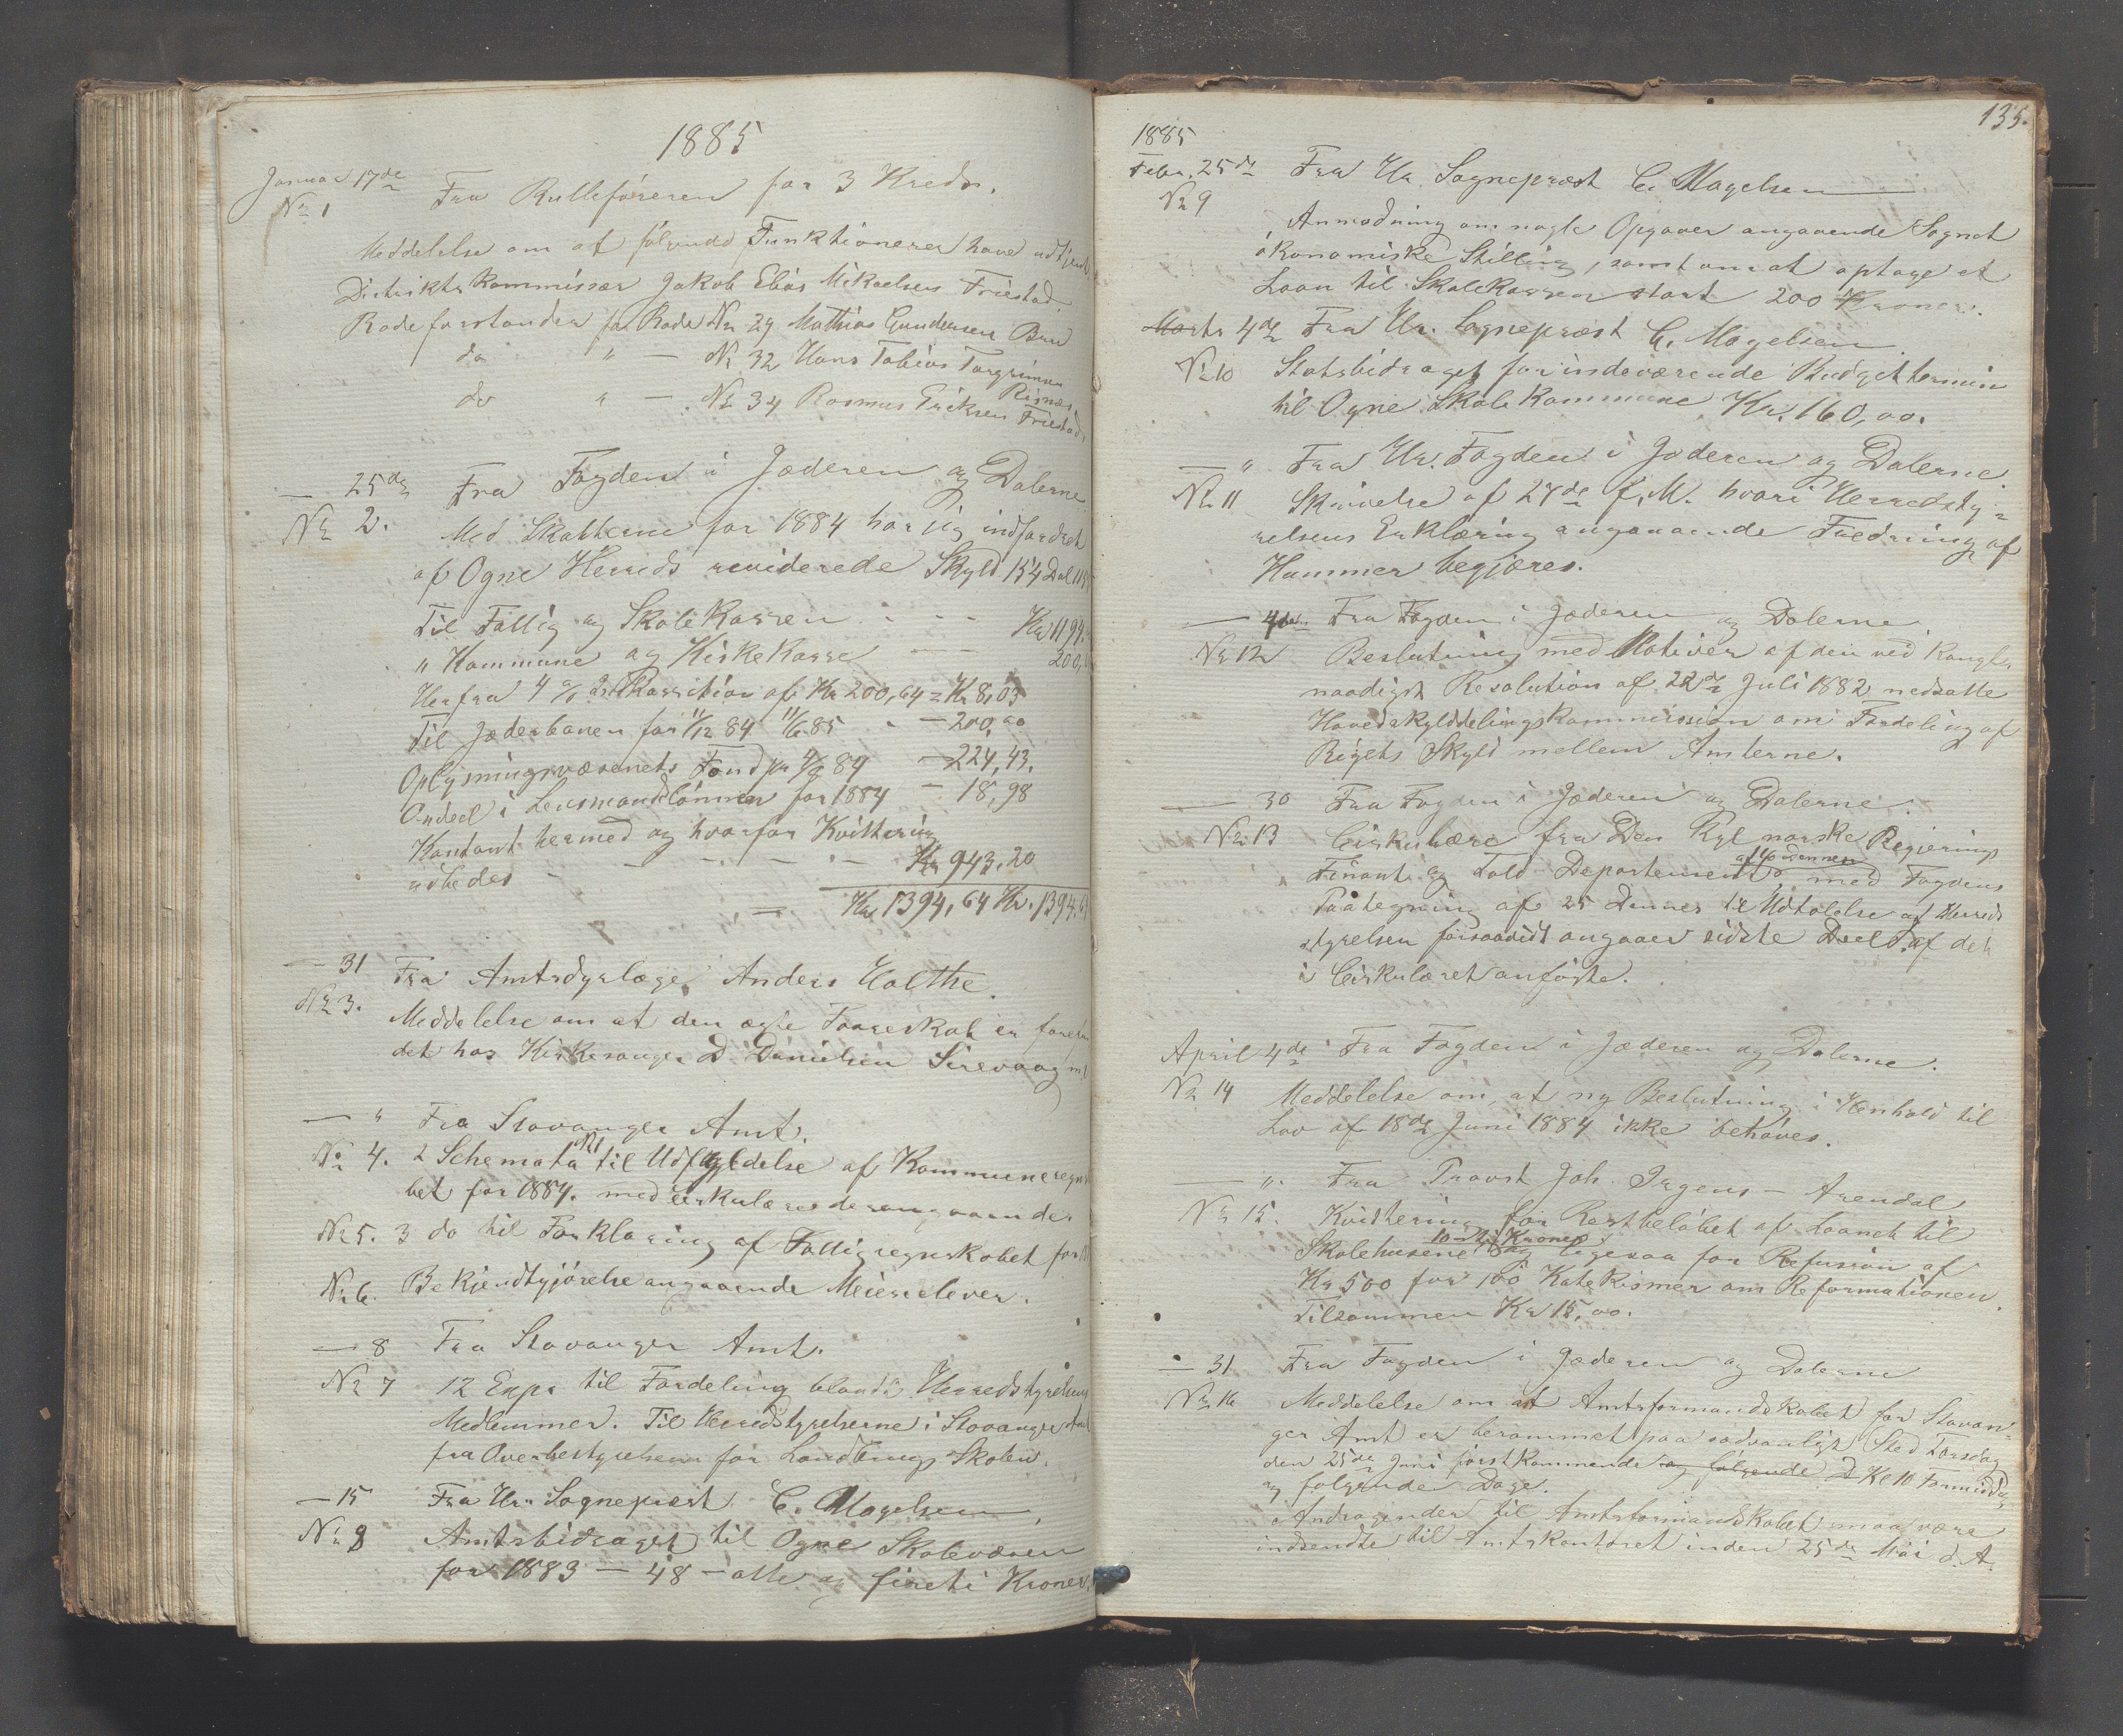 1885
Januar 17de Fra Rulleføreren for 3 Kreds.
No 1
Meddelelse om at følgende Funktionerer have udtjent
Distriktskommissær Jakob Elias Mikaelsen Friestad
Rodeforstander for Rode No 29 Mathias Gundersen Bru
do " — No 32 Hans Tobias Torgrimsen
Risnes
do " — No 34 Rasmus Eriksen Friestad
— 25de Fra Fogden i Jæderen og Dalerne
No 2. Med Skatterne for 1884 har jeg indfordret
af Ogne Herreds reviderede Skyld 154 Dal
Til Fattig og Skolekassen - - - Kr 1194.
" Kommune og Kirkekasse — 200,
Herfra 4 % af Kr 200,64 = Kr 8,03
Til Jæderbanen for 11/12 84 11/6 85 - — 200,00
Oplysningsvæsenets Fond 84 — 224,43.
Andeel i Lensmandslønnen for 1884 — 18,98
Kontant hermed og hvorfor Kvittering
udbedes - - - - - Kr 943,20
— Kr 1394,64 Kr. 1394,64
— 31 Fra Amtsdyrlæge Anders Holthe.
No 3. Meddelelse om at den ægte Faareskab er
det hos Kirkesanger D. Danielsen Sirevaag
— " Fra Stavanger Amt.
No 4. 2 Schemata til Udfyldelse af Kommuneregnska
bet for 1884. med Cirkulære derangaaende.
No 5. 3 do til Forklaring af Fattigregnskabet for
No 6. Bekjendtgjørelse angaaende Meierielever.
— 8 Fra Stavanger Amt.
No 7 12 Expr til Fordeling blandt Herredstyrelsens
Medlemmer. Til Herredstyrelserne i Stavanger Amt
fra Overbestyrelsen for Landbrugs Skolen.
— 15 Fra Hr. Sognepræst C. Magelsen
No 8 Amtsbidraget til Ogne Skolevæsen
for 1883 — 48 — otte og fireti Kroner.
135.
1885
Febr. 25de Fra Hr Sognepræst C. Magelsen
No 9
Anmodning om nogle Opgaver angaaende Sognets
økonomiske Stilling, samt om at optage et
Laan til Skolekassen stort 200 Kroner.
Marts 4de Fra Hr. Sognepræst C. Magelsen
No 10 Statsbidraget for indeværende Budgettermin
til Ogne Skole Kommune Kr. 160,00.
— " Fra Hr. Fogden i Jæderen og Dalerne.
No 11 Skrivelse af 27de f. M. hvori Herredsty-
relsens Erklæring angaaende Fredning af
Hummer begjæres.
— 4de Fra Fogden i Jæderen og Dalerne
No 12 Beslutning med Motiver af den ved Kongl.
naadigst Resolution af 22de Juli 1882 nedsatte
Hovedskylddelingskommission om Fordeling af
Rigets Skyld mellem Amterne.
— 30 Fra Fogden i Jæderen og Dalerne.
No 13 Cirkulære fra Den Kgl norske Regjerings
Finants og Told Departement af 16 dennes med Fogdens
Paategning af 25 Dennes til Udtalelse af Herreds
styrelsen forsaavidt angaaer sidste Deel af det
i Cirkulæret anførte.
April 4de Fra Fogden i Jæderen og Dalerne.
No 14 Meddelelse om, at ny Beslutning i Henhold til
Lov af 18de Juni 1884 ikke behøves.
— ". Fra Provst Joh. Irgens — Arendal
No 15. Kvittering for Restbeløbet af Laanet til
Skolehusene 10 Kroner og ligesaa for Refusion af
Kr 500 for 100 Katekismer om Reformationen.
Tilsammen Kr 15,00.
— 31 Fra Fogden i Jæderen og Dalerne
No 16 Meddelelse om at Amtsformandskabet for Stavan-
ger Amt er berammet paa sædvanligt Sted Torsdag
den 25de Juni førstkommende og følgende D Kl 10 Formiddag
og følgende Dage.
Andragender til Amtsformandskabet maa være
indsendte til Amtskontoret inden 25de Mai d. A.